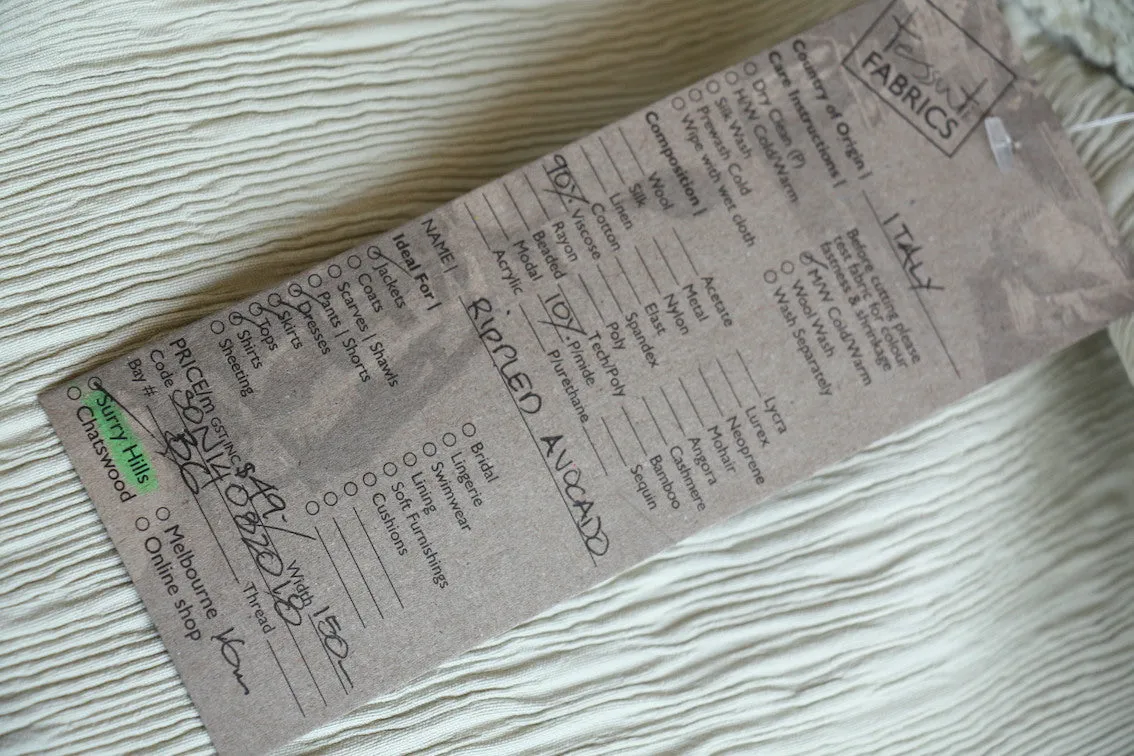 Tessuti
FABRICS
Country of Origin | ITALY
Care Instructions |
Dry Clean (P)
H/W Cold/Warm
Silk Wash
Prewash Cold
Wipe with wer cloth
Before cutting please
test fabric for colour
fastness & shrinkage
M/W Cold/Warm
Wool Wash
Wash Separately
Composition |
Wool
Silk
Linen
Cotton
90% Viscose
Rayon
Beaded
Modal
Acrylic
Acetate
Metal
Nylon
Elast
Spandex
Poly
Tech/Poly
10% P/mide
P/urethane
Lycra
Lurex
Neoprene
Mohair
Angora
Cashmere
Bamboo
Sequin
NAME | RIPPLED AVOCADO
Ideal For |
Jackets
Coats
Scarves | Shawls
Pants | Shorts
Dresses
Skirts
Tops
Shirts
Sheeting
Bridal
Lingerie
Swimwear
Lining
Soft Furnishings
Cushions
PRICE/m GST INC $49.- Width 150
Code SON140882018
Bay # BG Thread
Surry Hills
Chatswood
Melbourne
Online shop